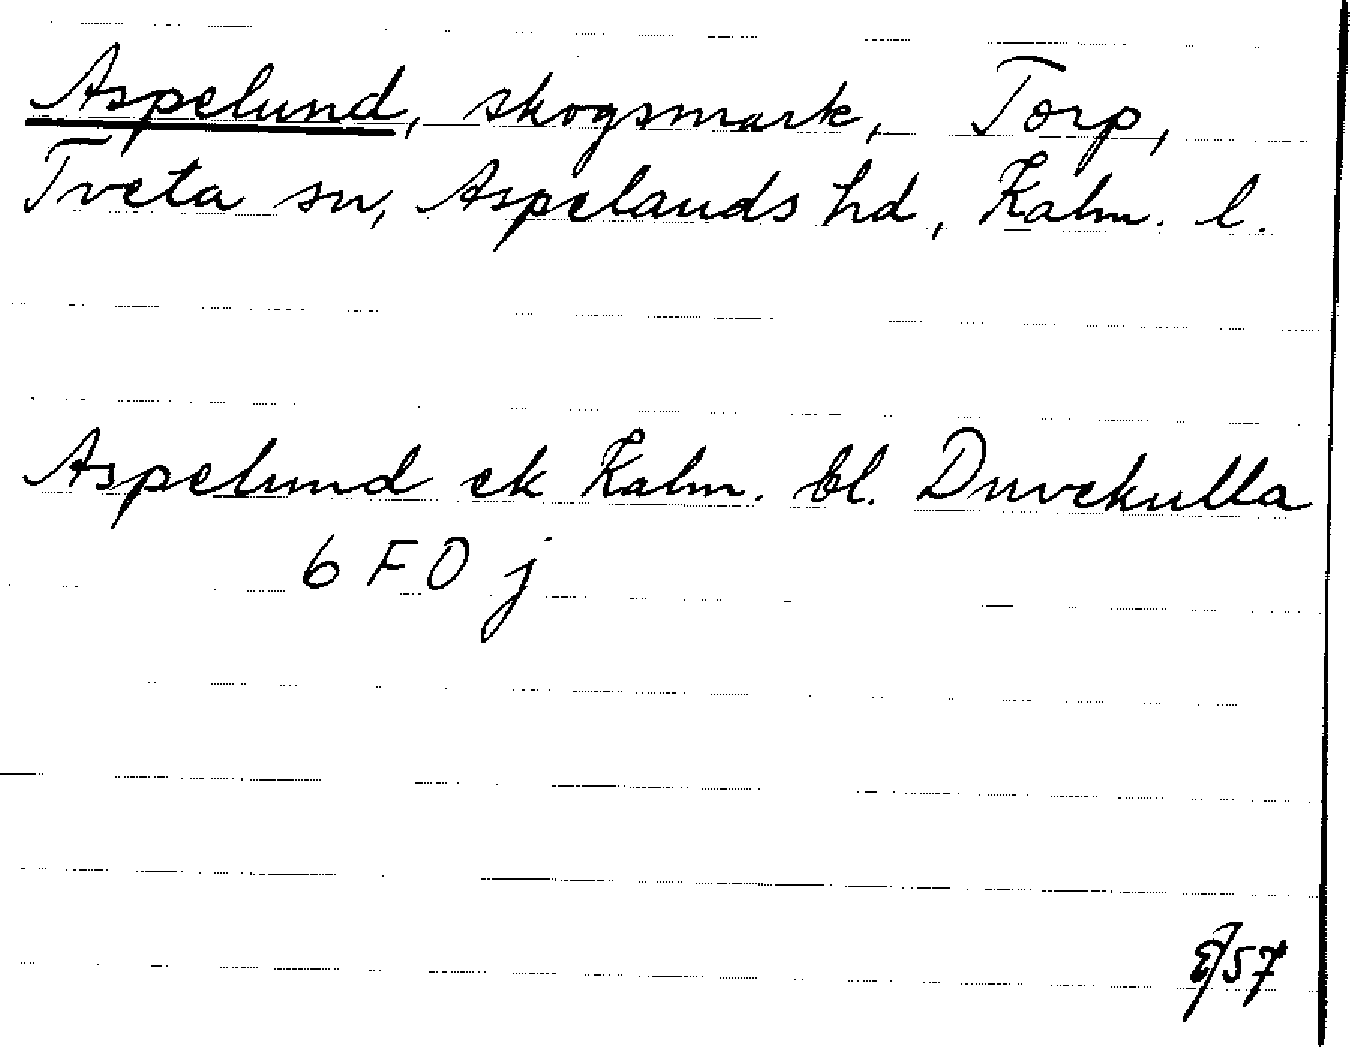 Aspelund, skogsmark, Torp,
Tveta sn, Aspelands hd, Kalm. l.
Aspelund ek Kalm. bl. Duvekulla
6 F 0 j
/57